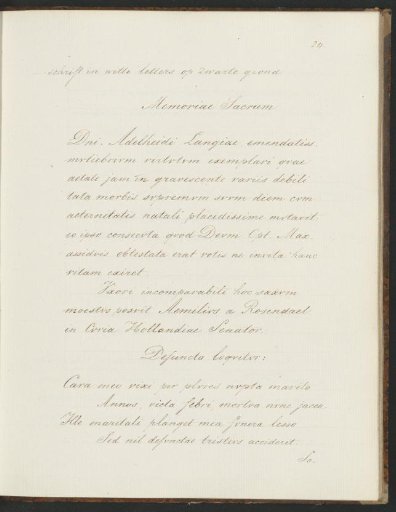 29
schrift in witte letters op zwarte grond
Memoriae Sacrum
Dni. Adelheidi Langiae emendatiss.
mvliebrivm virtvtvm exemplari qvae
aetate jam in gravescente variis debili
tata morbis svpremvm svvm diem cvm
aeternitatis natali placidissime mvtavit
eo ipso consecvta qvod Devm Opt. Max.
assidvis obtestata erat votis ne invita hanc
vitam exiret.
Vxori incomparabili hoc saxvm
moestvs posvit Aemilivs a Rosendael
in Cvria Hollandiae Senator.
Defuncta loqvitvr:
Cara meo vixi per plvres nvpta marito
Annos, victa febri, mortva nvnc jaceo
Ille maritali planget mea funera lesso
Sed nil defunctae tristivs accideret.
Sa.